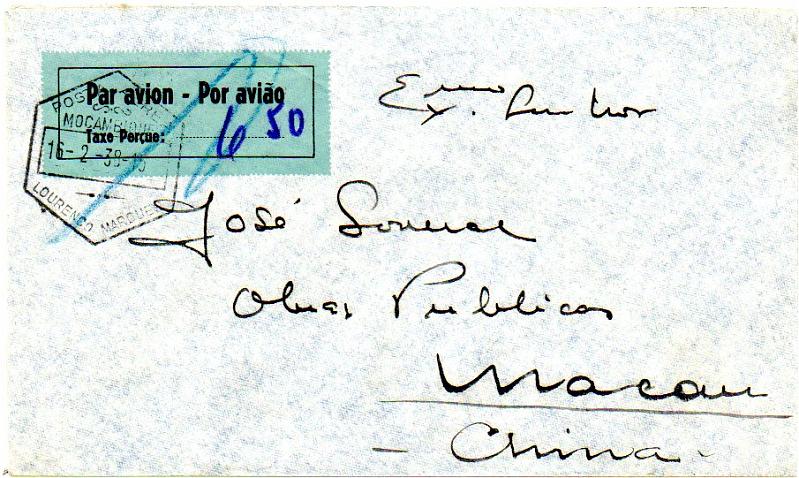 Par avion - Por avião
Taxe Perçue: 6 50
MOÇAMBIQUE
16-2-38-15
LOURENÇO MARQUES
Exmo. Senhor
José
Obras Publicas
Macau
- China -